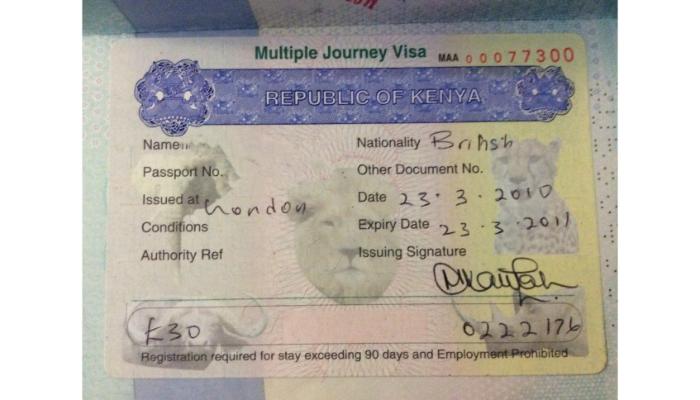 Multiple Journey Visa MAA 00077300
REPUBLIC OF KENYA
Name Nationality British
Passport No. Other Document No.
Issued at London Date 23·3·2010
Conditions Expiry Date 23·3·2011
Authority Ref Issuing Signature
£30 0222176
Registration required for stay exceeding 90 days and Employment Prohibited